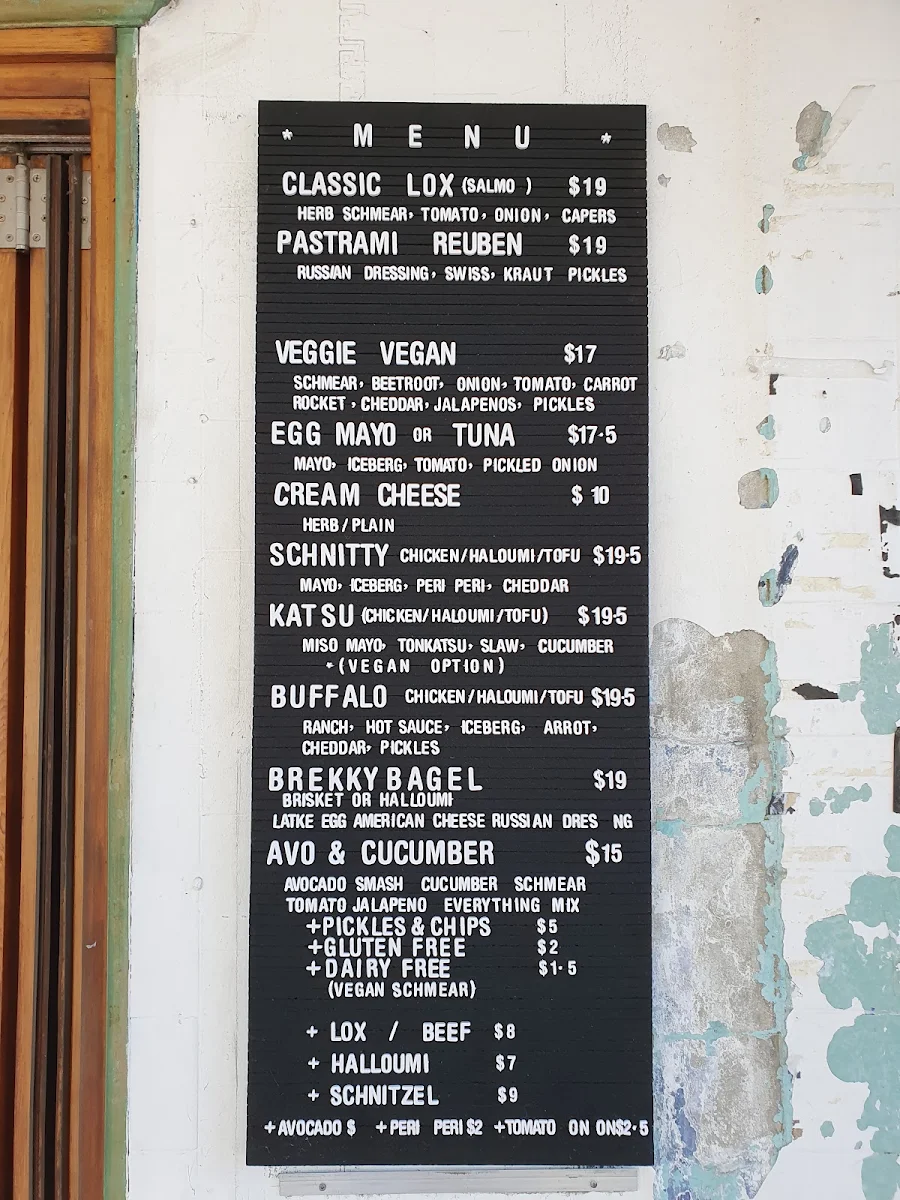 * MENU *
CLASSIC LOX (SALMO ) $19
HERB SCHMEAR, TOMATO, ONION, CAPERS
PASTRAMI REUBEN $19
RUSSIAN DRESSING, SWISS, KRAUT PICKLES
VEGGIE VEGAN $17
SCHMEAR, BEETROOT, ONION, TOMATO, CARROT
ROCKET, CHEDDAR, JALAPENOS, PICKLES
EGG MAYO OR TUNA $17·5
MAYO, ICEBERG, TOMATO, PICKLED ONION
CREAM CHEESE $ 10
HERB/PLAIN
SCHNITTY CHICKEN/HALOUMI/TOFU $19·5
MAYO, ICEBERG, PERI PERI, CHEDDAR
KATSU (CHICKEN/HALOUMI/TOFU) $19·5
MISO MAYO, TONKATSU, SLAW, CUCUMBER
*(VEGAN OPTION)
BUFFALO CHICKEN/HALOUMI/TOFU $19·5
RANCH, HOT SAUCE, ICEBERG, ARROT,
CHEDDAR, PICKLES
BREKKY BAGEL $19
BRISKET OR HALLOUMI
LATKE EGG AMERICAN CHEESE RUSSIAN DRES NG
AVO & CUCUMBER $15
AVOCADO SMASH CUCUMBER SCHMEAR
TOMATO JALAPENO EVERYTHING MIX
+PICKLES & CHIPS $5
+GLUTEN FREE $2
+DAIRY FREE $1·5
(VEGAN SCHMEAR)
+ LOX / BEEF $8
+ HALLOUMI $7
+ SCHNITZEL $9
+AVOCADO $ +PERI PERI $2 +TOMATO ON ON$2·5